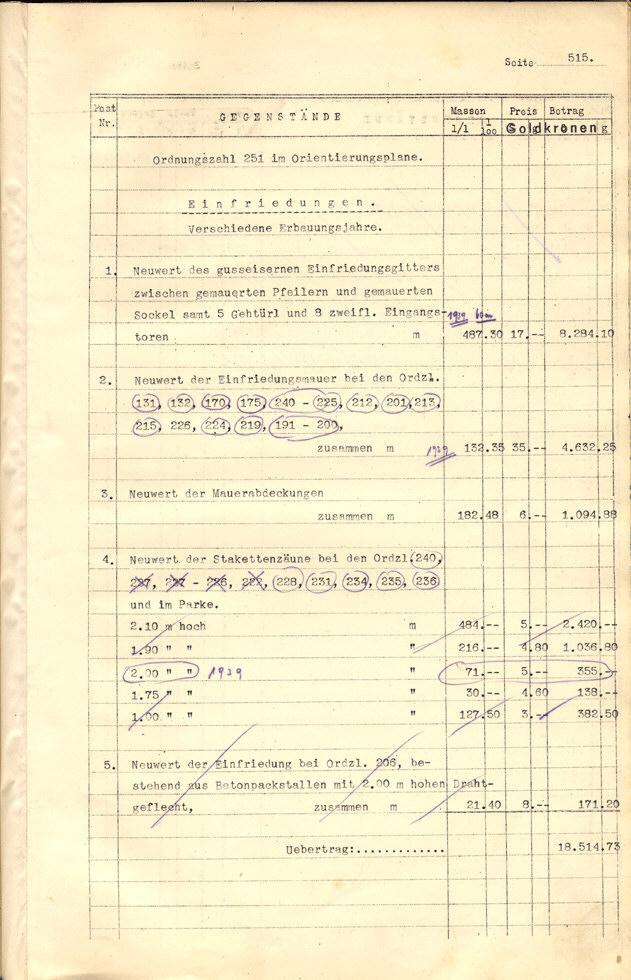 Seite 515.
Post Nr. GEGENSTÄNDE Massen Preis Betrag
1/1 1/100 Goldkronen g
Ordnungszahl 251 im Orientierungsplane.
Einfriedungen.
Verschiedene Erbauungsjahre.
1. Neuwert des gusseisernen Einfriedungsgitters
zwischen gemauerten Pfeilern und gemauerten
Sockel samt 5 Gehtürl und 8 zweifl. Eingangs- 1929
toren m 487.30 17.-- 8.284.10
2. Neuwert der Einfriedungsmauer bei den Ordzl.
131, 132, 170, 175, 240 - 225, 212, 201, 213,
215, 226, 224, 219, 191 - 200,
zusammen m 1929 132.35 35.-- 4.632.25
3. Neuwert der Mauerabdeckungen
zusammen m 182.48 6.-- 1.094.88
4. Neuwert der Stakettenzäune bei den Ordzl. 240,
227, 227 - 226, 222, 228, 231, 234, 235, 236
und im Parke.
2.10 m hoch m 484.-- 5.-- 2.420.--
1.90 " " " 216.-- 4.80 1.036.80
2.00 " " 1929 " 71.-- 5.-- 355.--
1.75 " " " 30.-- 4.60 138.--
1.00 " " " 127.50 3.-- 382.50
5. Neuwert der Einfriedung bei Ordzl. 206, be-
stehend aus Betonpackstallen mit 2.00 m hohen Draht-
geflecht, zusammen m 21.40 8.-- 171.20
Uebertrag:............. 18.514.73